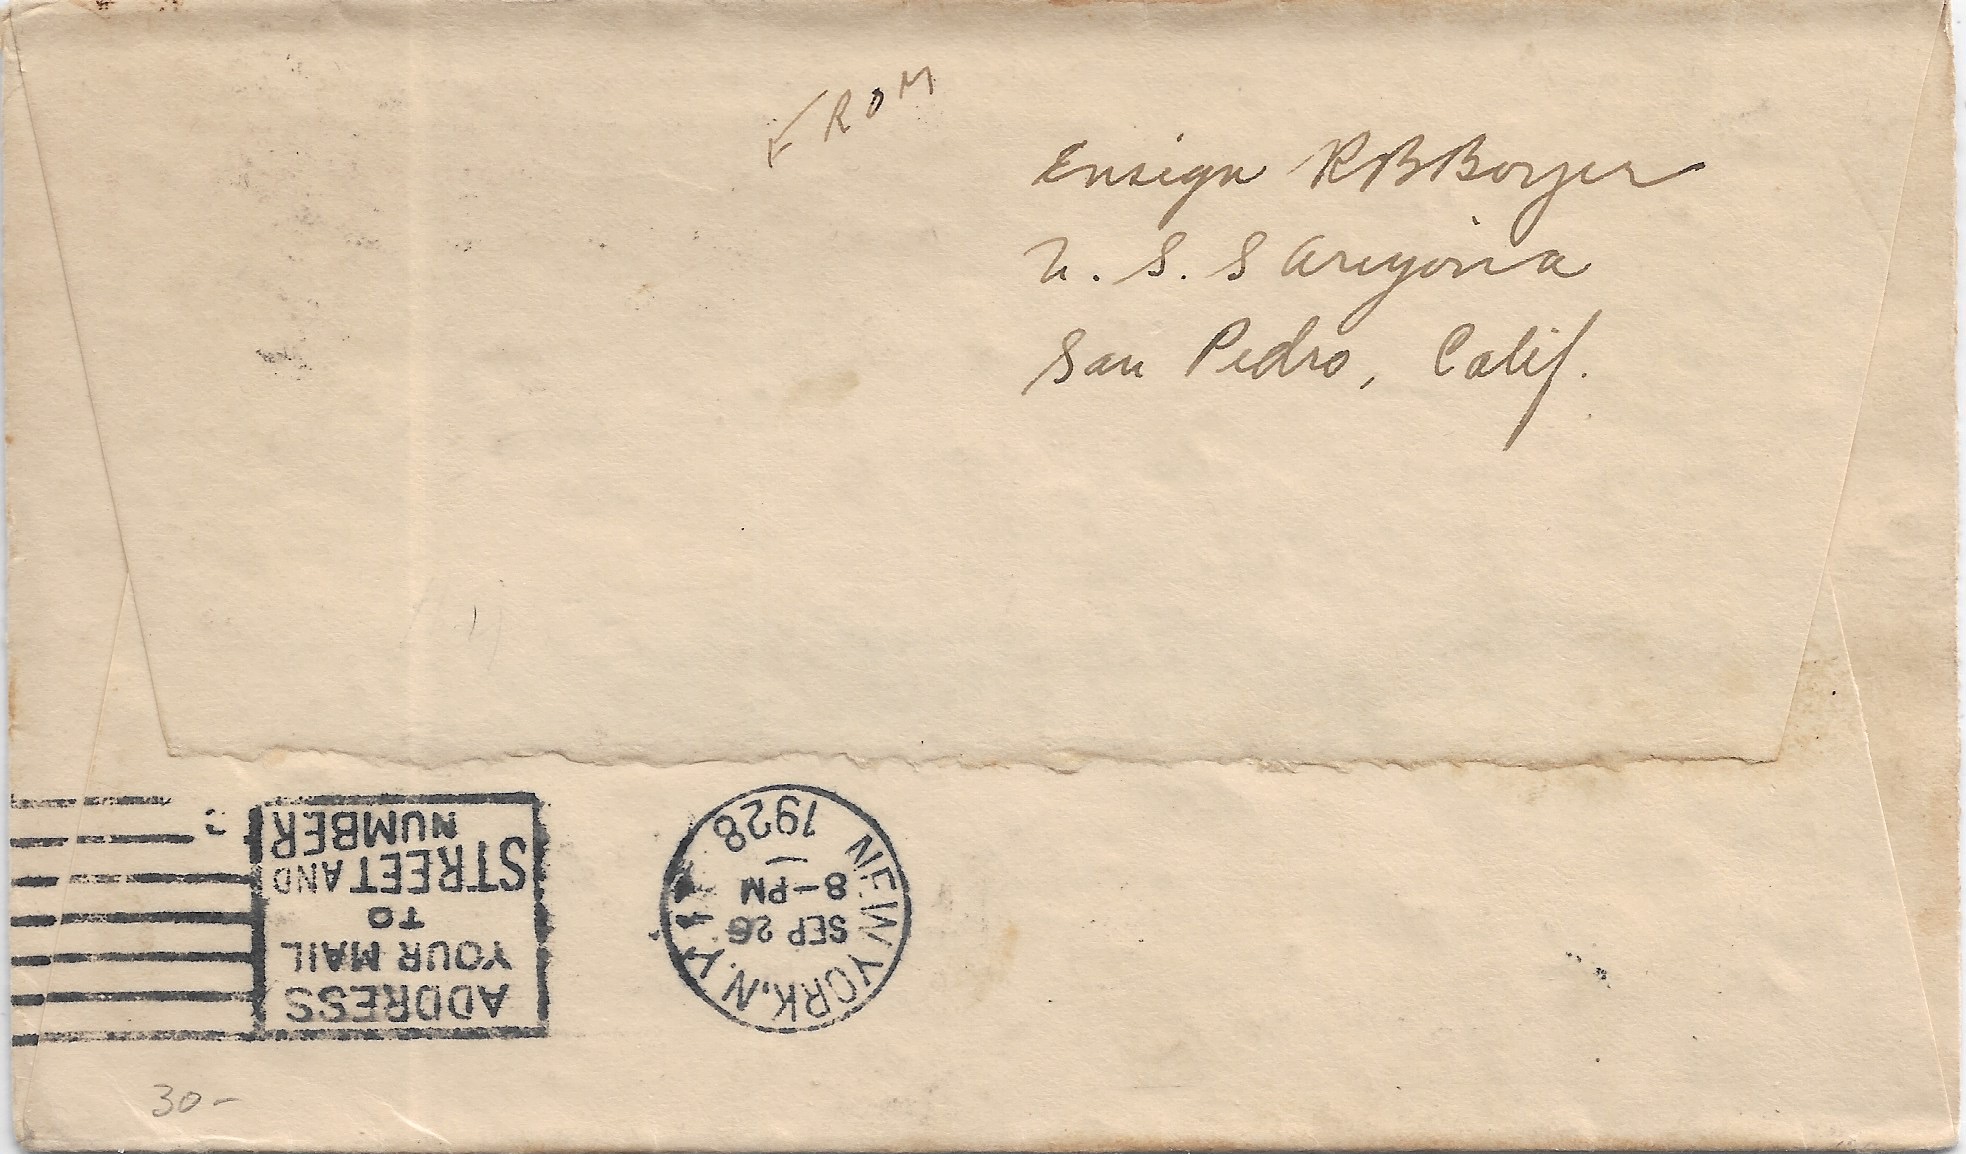 FROM
Ensign RB Boyer
U. S. S Arizona
San Pedro, Calif.
NEW YORK, N.Y.
SEP 26
8-PM
1928
ADDRESS
YOUR MAIL
TO
STREET AND
NUMBER
30-